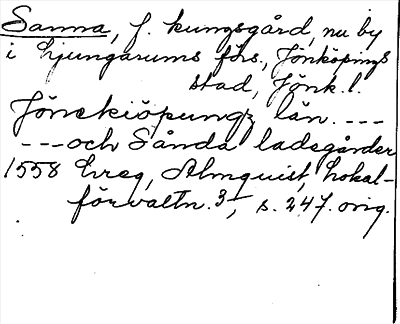 Sanna, f. kungsgård, nu by
i Ljungarums förs., Jönköpings
stad, Jönk.l.
Jönekiöpungz län. ---
--- och Sånda ladegårder
1558 Lreg, Almquist, Lokal-
förvaltn. 3, s. 247. orig.